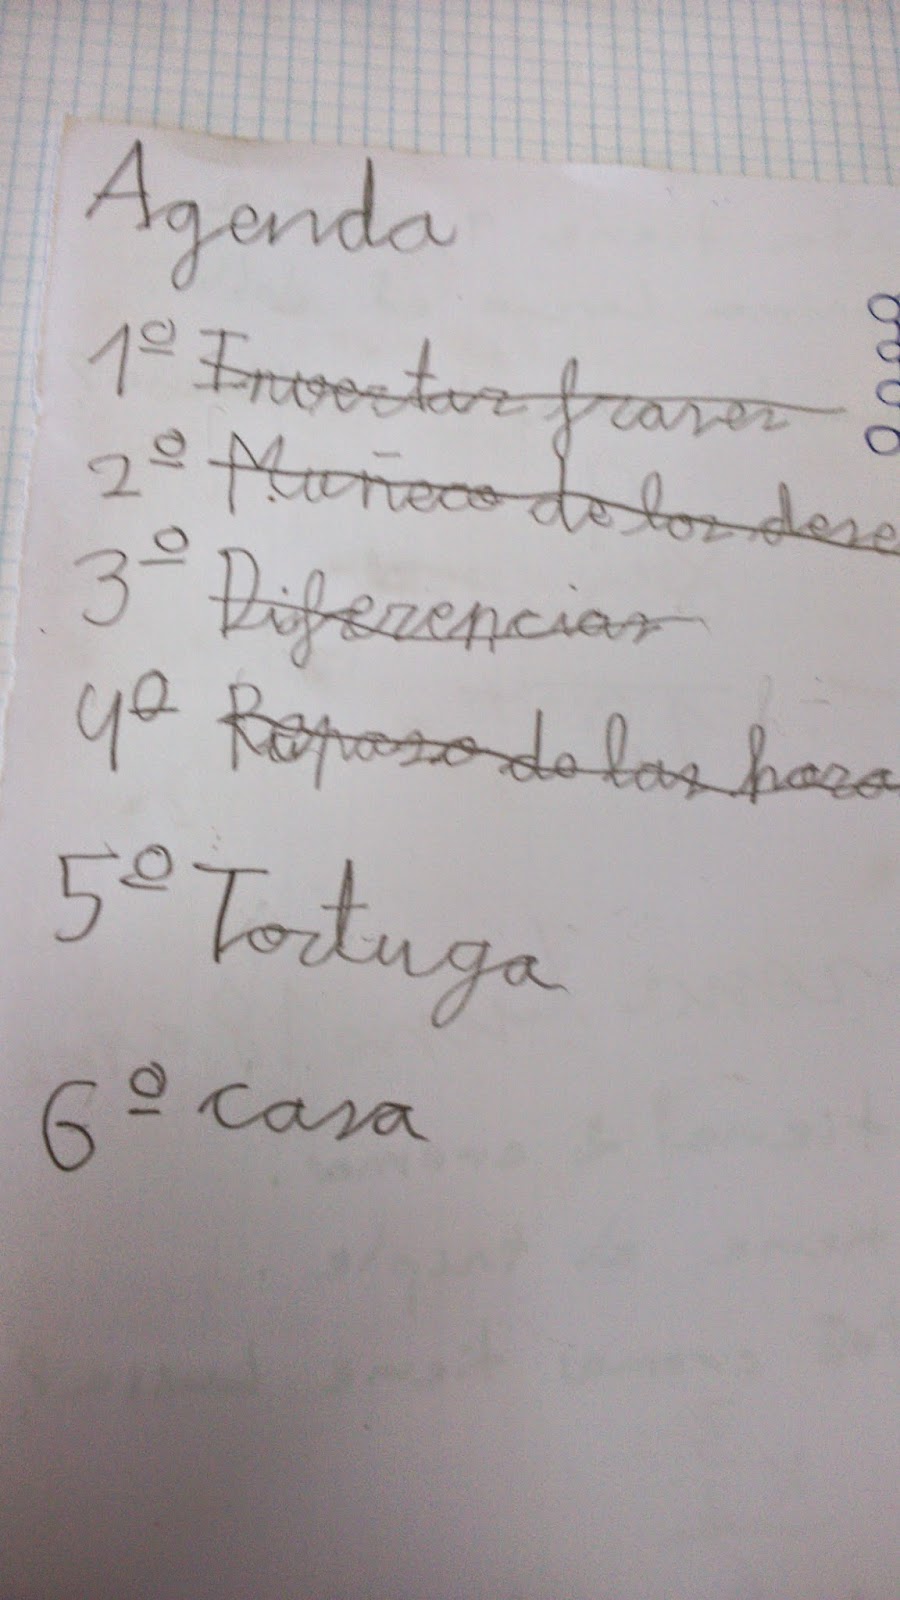 Agenda
1º Inventar frases
2º Muñeco de los dese
3º Diferenciar
4º Repaso de las hora
5º Tortuga
6º casa